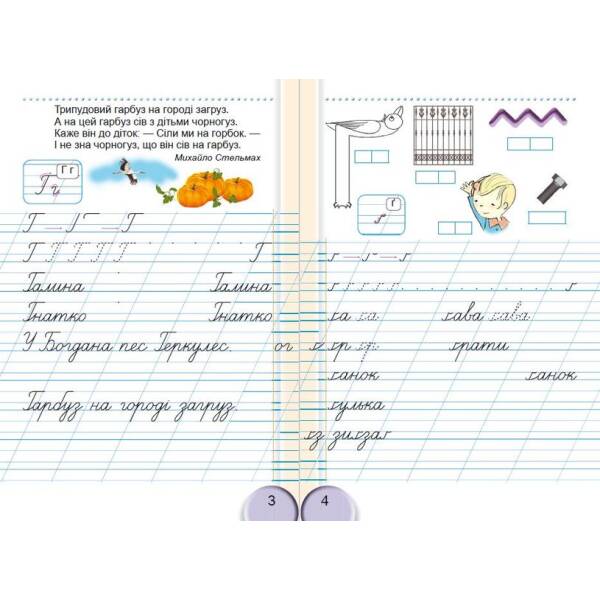 Трипудовий гарбуз на городі загруз.
А на цей гарбуз сів з дітьми чорногуз.
Каже він до діток: — Сіли ми на горбок. —
І не зна чорногуз, що він сів на гарбуз.
Михайло Стельмах
Г г
Г г
Г Г Г Г Г Г
Галина Галина
Гнатко Гнатко
У Богдана пес Геркулес. ог
Гарбуз на городі загруз.
3
ґ
ґ
ґ ґ ґ ґ ґ ґ
ґа ґа ґава ґава
ґр ґр ґрати
ґанок ґанок
ґулька
ґз зиґзаґ
4